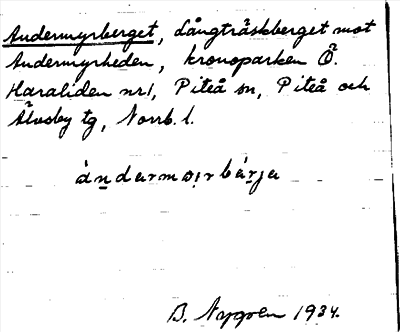 Andermyrberget, Långträskberget mot
Andermyrheden, kronoparken Ö.
Haraliden nr 1, Piteå sn, Piteå och
Älvsby tg, Norrb. l.
àndarmøi̯rbár̯ja
B. Nygren 1934.